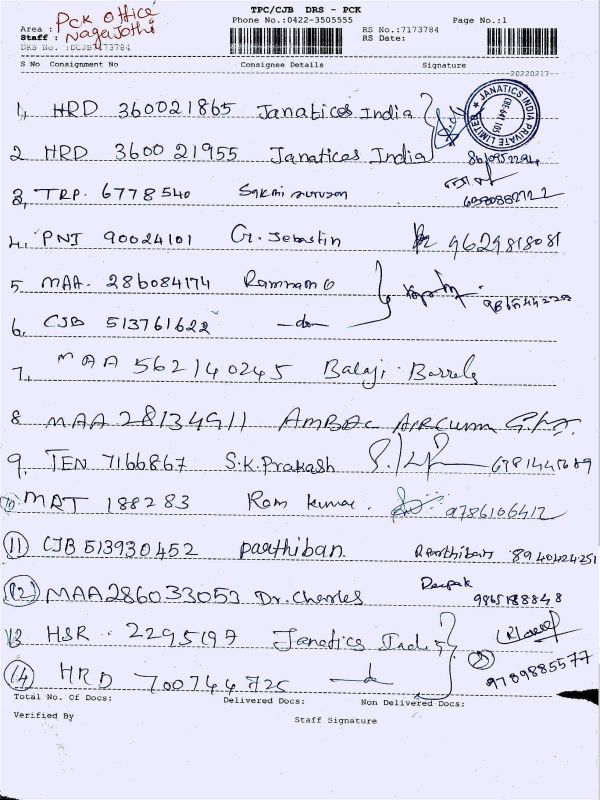 TPC/CJB DRS - PCK
Phone No.:0422-3505555
Page No.:1
Area : PCK Office
Staff : Nagajothi
RS No.:7173784
RS Date:
DRS No. :DCJB7173784
S No Consignment No Consignee Details Signature
20220217
JANATICS INDIA PRIVATE LIMITED
1, HRD 360021865 Janatics India
2 HRD 3600 21955 Janatices India
3, TRP. 6778540
4. PNJ 90024101 G. Jebastin 9629818081
5 MAA. 286084174
6. CJB 513761622 -do-
7. MAA 562140245 Balaji Barrels
8 MAA 28134911 AMBAC
9. TEN 7166867 S.K. Prakash
10 MAT 188283 Ram kumar. 9786106412
11 CJB 513930452 paarthiban 8940424251
12 MAA286033053 Dr. Charles Deepak 9865188848
13 HSR 2295197 Janatics India
14 HRD 700744725 -do- 9789885577
Total No. Of Docs: Delivered Docs: Non Delivered Docs:
Verified By Staff Signature